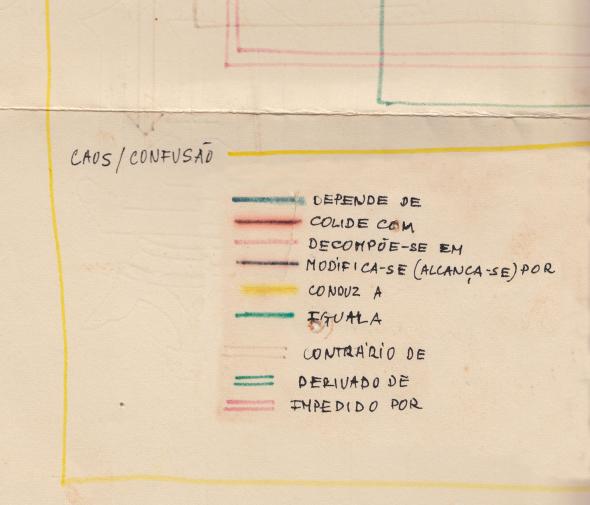 CAOS/CONFUSÃO
DEPENDE DE
COLIDE COM
DECOMPÕE-SE EM
MODIFICA-SE (ALCANÇA-SE) POR
CONDUZ A
IGUALA
CONTRÁRIO DE
DERIVADO DE
IMPEDIDO POR